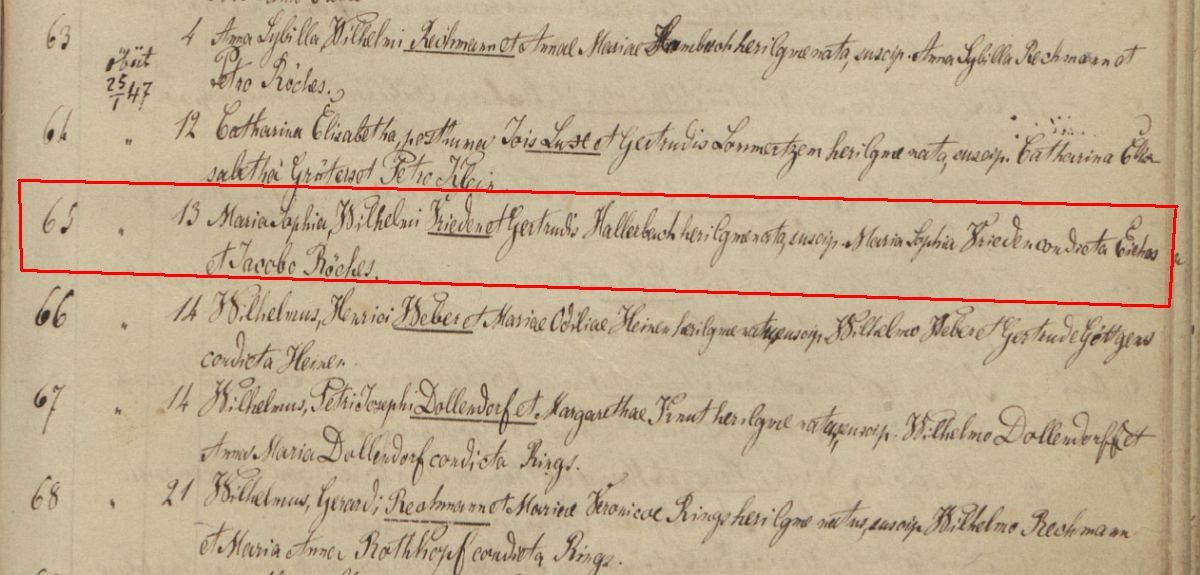 63 4 Anna Sybilla Wilhelmi Rechmann et Annae Mariae Hambach herilgmæ nata, suscip. Anna Sybilla Rechmann et
obiit 25/1 47 Petro Röches.
64 " 12 Catharina Elisabetha, posthuma Jois Luxe et Gertrudis Lommertzem herilgmæ nata, suscip. Catharina Elisa
sabetha Grüters et Petro Klein.
65 " 13 Maria Sophia, Wilhelmi Frieden et Gertrudis Hallerbach herilgmæ nata, suscip. Maria Sophia Frieden condicta
et Jacobo Röches.
66 " 14 Wilhelmus, Henrici Weber et Mariae Odiliae Heinen herilgmæ natus, suscip. Wilhelmo Weber et Gertrude Göttgens
condicta Heinen.
67 " 14 Wilhelmus, Petri Josephi Dollendorf et Margarethae Knut herilgmæ natus, suscip. Wilhelmo Dollendorff et
Anna Maria Dollendorf condicta Rings.
68 " 21 Wilhelmus, Gerardi Rechmann et Mariae Veronicae Rings herilgmæ natus, suscip. Wilhelmo Rechmann
et Maria Anna Rothkopf condicta Rings.